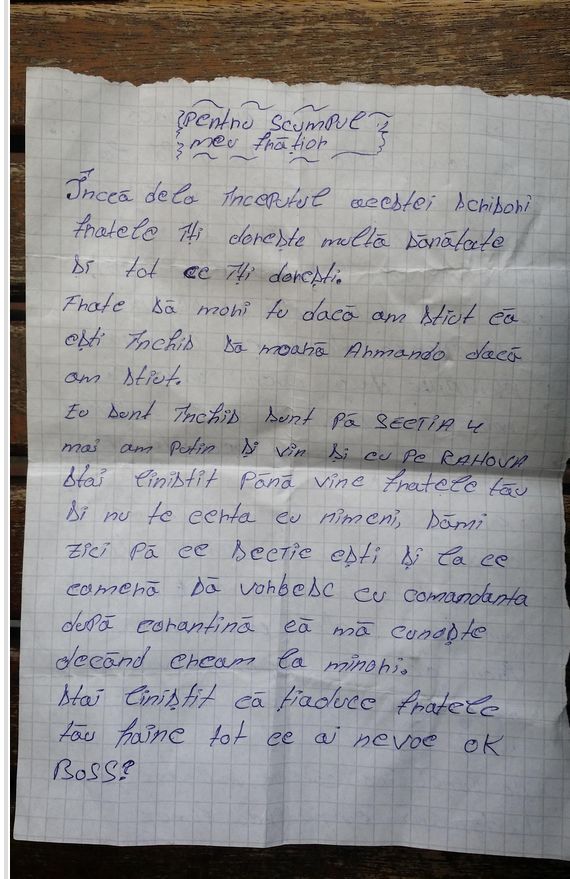 Pentru scumpul
meu frățior
Încea dela începutul acestei scrisori
fratele îți dorește multă sănătate
și tot ce îți dorești.
Frate să mori tu dacă am știut că
ești închis să moară Armando dacă
am știut.
Eu sunt închis sunt pă SECTIA 4
mai am puțin și vin și eu pe RAHOVA
stai liniștit pănă vine fratele tău
și nu te certa cu nimeni, sămi
zici pă ce secție ești și la ce
cameră să vorbesc cu comandanta
după carantină că mă cunoște
decănd eream la minori.
stai liniștit că țiaduce fratele
tău haine tot ce ai nevoe OK
BOSS?